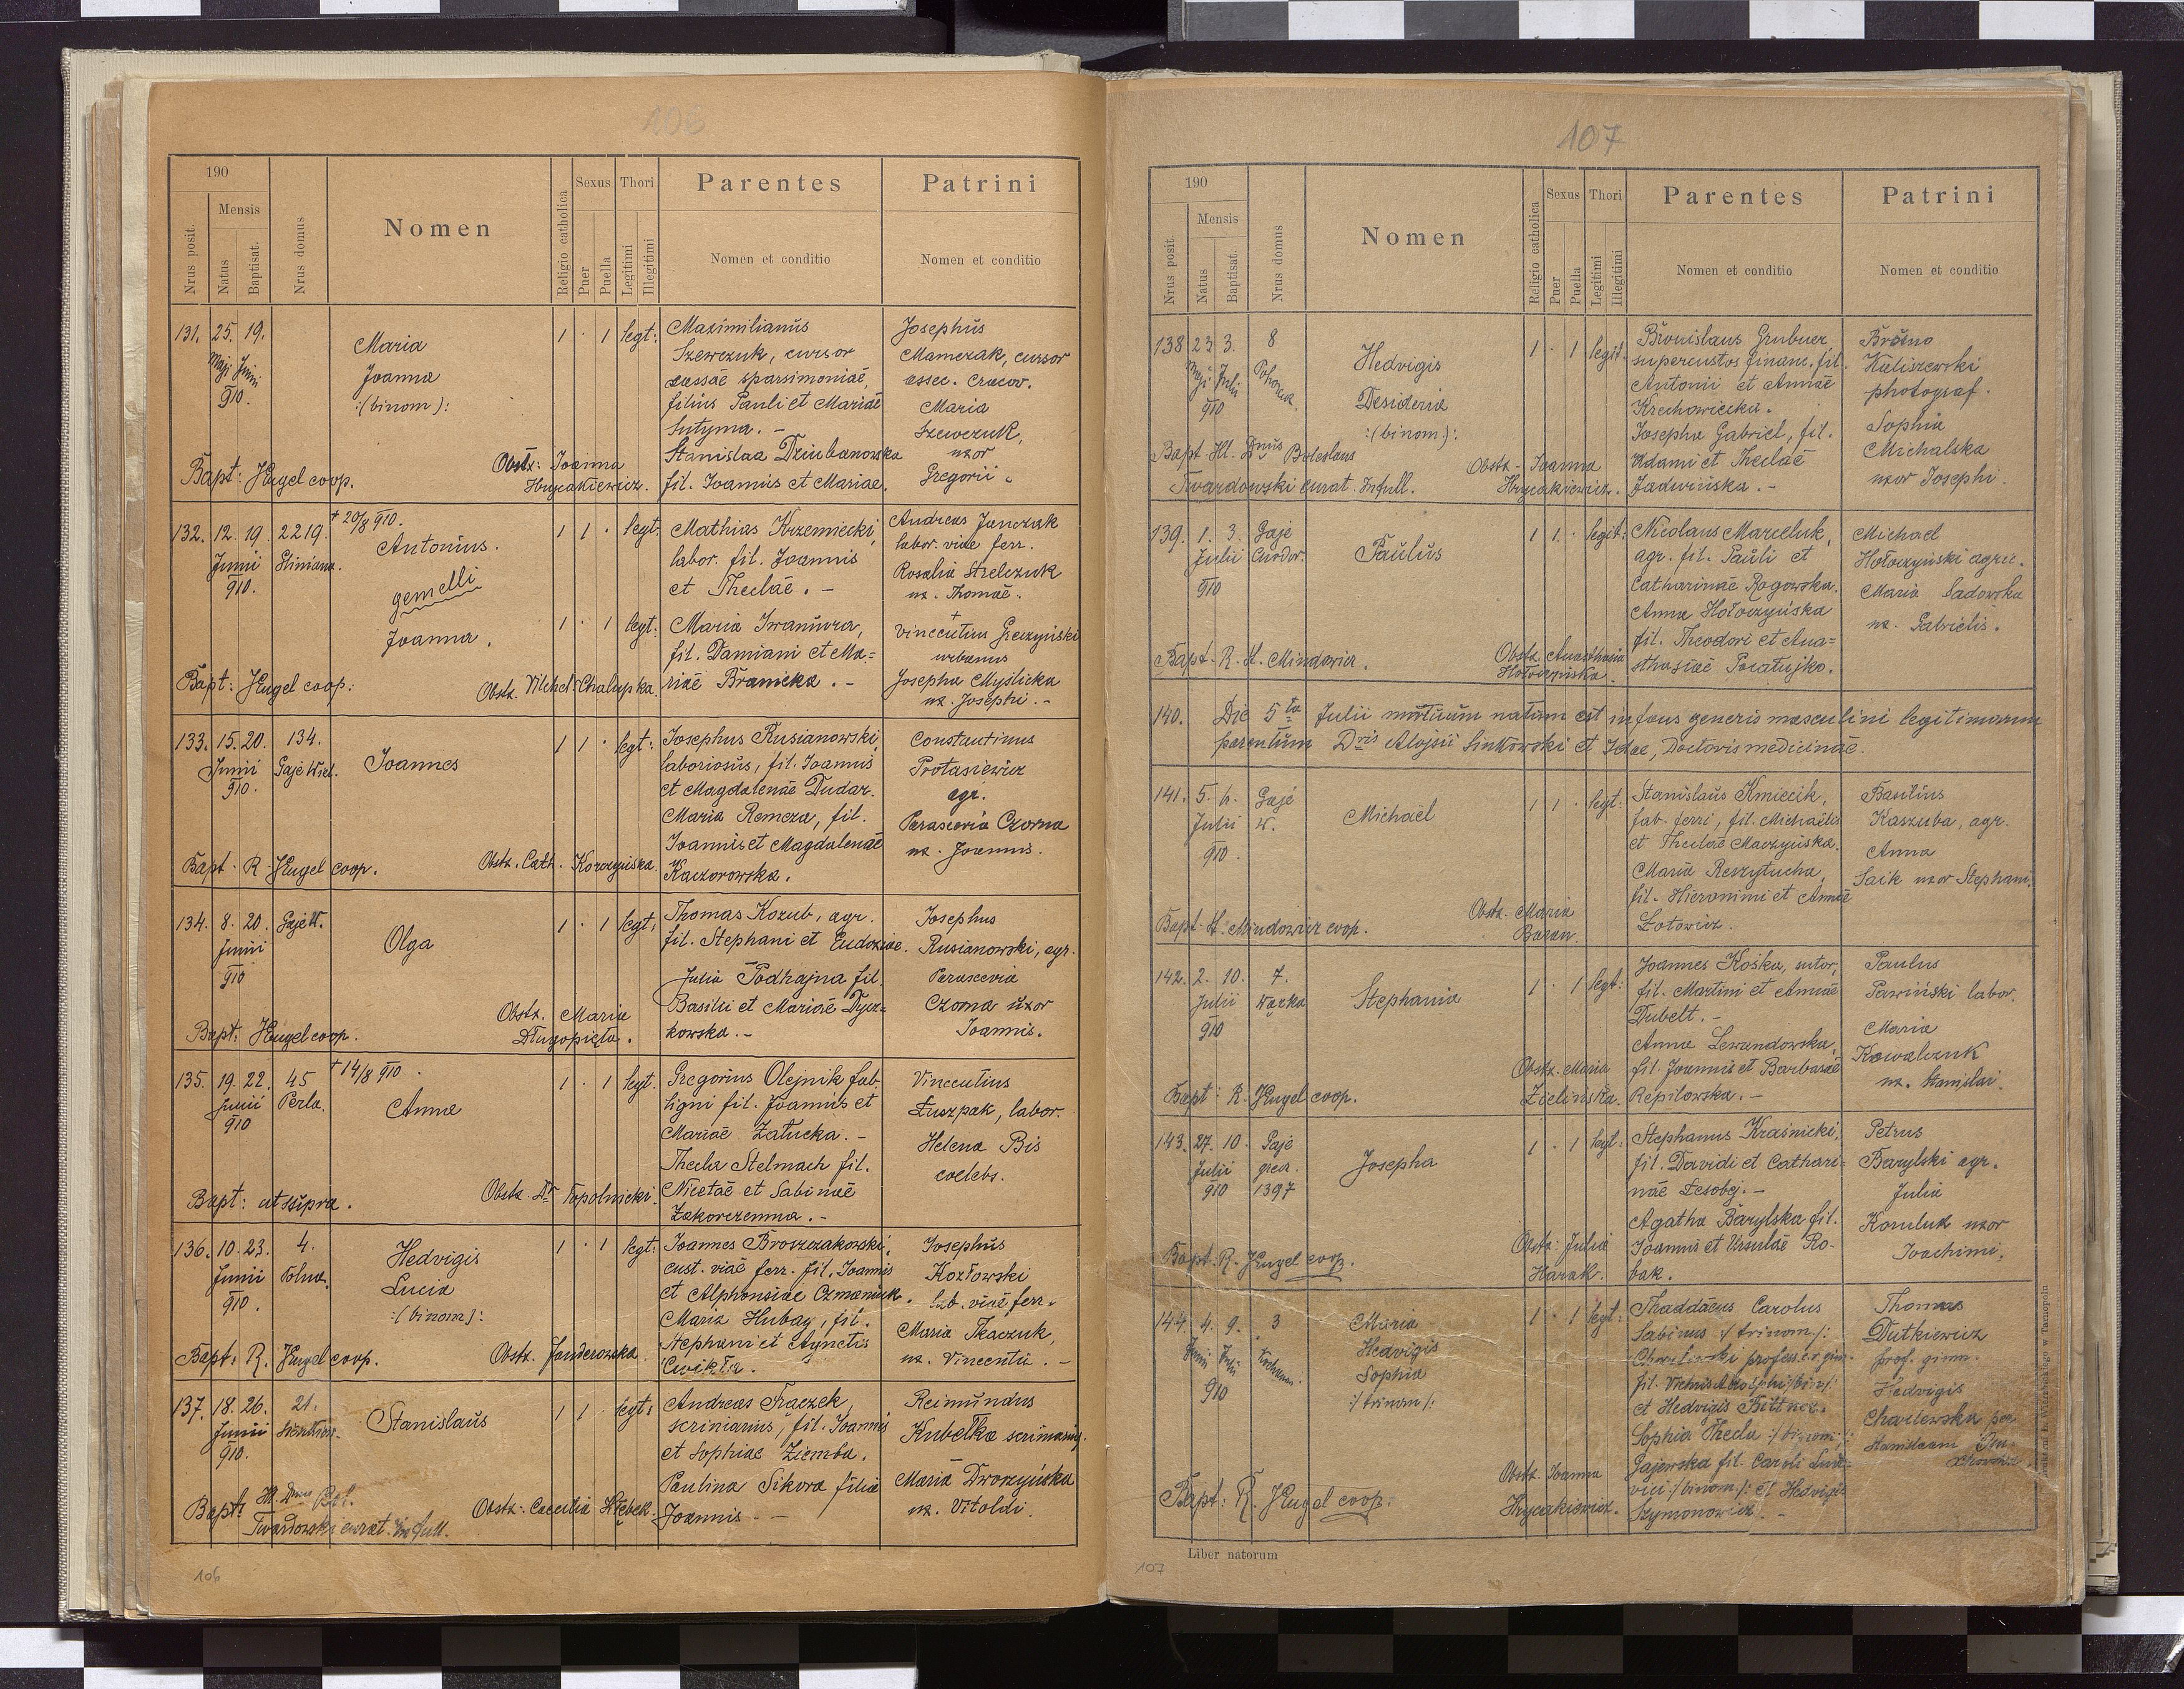 106
190
Nrus posit.
Mensis
Natus
Baptisat.
Nrus domus
Nomen
Religio catholica
Sexus
Puer
Puella
Thori
Legitimi
Illegitimi
Parentes
Nomen et conditio
Patrini
Nomen et conditio
131. 25. 19.
Maji Junii
910.
Maria
Joanna
:(binom):
1 · 1 legt:
Maximilianus
Szewczuk, cursor
cassae sparsimoniae,
filius Pauli et Mariae
Sutyma. -
Stanislaa Dziubanowska
fil. Joannis et Mariae.
Josephus
Mamczak, cursor
assec. Cracov.
Maria
Szewczuk,
uxor
Gregorii.
Bapt: Hugel coop.
Obstx: Joanna
Hrycakiewicz.
132. 12. 19. 2219.
Junii
910.
† 20/8 910.
Antonius.
gemelli
Joanna.
1 1 · legt.
1 · 1 legt:
Mathias Krzemiecki,
labor. fil. Joannis
et Theclae. -
Maria Iwaniura,
fil. Damiani et Ma=
riae Branicka. -
Andreas Janczak
labor. viae ferr.
Rosalia Strelczuk
ux. Thomae.
†
Vincentius Greczyński
urbanus
Josepha Myślicka
ux. Josephi. -
Bapt: Hugel coop:
Obstx. Michal. Chalupka.
133. 15. 20. 134.
Junii Gaje Wiel.
910.
Joannes
1 1 · legt:
Josephus Rusianowski,
laboriosus, fil. Joannis
et Magdalenae Dudar.
Maria Remeza, fil.
Joannis et Magdalenae
Kaczorowska.
Constantinus
Protasiewicz
agr.
Parascevia Czorna
ux. Joannis.
Bapt. R. Hugel coop.
Obstx. Cath. Korczyńska.
134. 8. 20. Gaje W.
Junii
910
Olga
1 · 1 legt:
Thomas Kozub, agr.
fil. Stephani et Eudoxiae.
Julia Podhajna fil.
Basilii et Mariae Dycz=
kowska. -
Josephus
Rusianowski, agr.
Parascevia
Czorna uxor
Joannis.
Bapt: Hugel coop.
Obstx. Maria
Długopięta.
135. 19. 22. 45
Junii Perla.
910
† 14/8 910.
Anna
1 · 1 legt.
Gregorius Olejnik fab.
ligni fil. Joannis et
Mariae Załucka. -
Thecla Stelmach fil.
Nicetae et Sabinae
Zakorczemna. -
Vincentius
Łuszpak, labor.
Helena Bis
coelebs.
Bapt: ut supra.
Obstx. Dr Topolnicki.
136. 10. 23. 4.
Junii Polna.
910.
Hedvigis
Lucia
:(binom):
1 · 1 legt:
Joannes Broszczakowski,
cust. viae ferr. fil. Joannis
et Alphonsiae Ozmaniuk.
Maria Hubay, fil.
Stephani et Agnetis
Ćwikła.
Josephus
Kozłowski
lab. viae ferr.
Maria Tkaczuk,
ux. Vincentii. -
Bapt: R. Hugel coop.
Obstx. Janderowska.
137. 18. 26. 21.
Junii
910.
Stanislaus
1 1 · legt:
Andreas Traczek,
scriniarius, fil. Joannis
et Sophiae Ziemba.
Paulina Sikora filia
Joannis - - /
Reimundus
Kubelka scriniarius.
Maria Dworzyńska
ux. Vitoldi.
Bapt: Ill. Dnus Bol.
Twardowski curat. Infull.
Obstx. Caecilia Kłębek.
106
107
190
Nrus posit.
Mensis
Natus
Baptisat.
Nrus domus
Nomen
Religio catholica
Sexus
Puer
Puella
Thori
Legitimi
Illegitimi
Parentes
Nomen et conditio
Patrini
Nomen et conditio
138 23 3. 8
Maji Julii
910
Hedvigis
Desideria
:(binom):
1 · 1 legit.
Bronislaus Grubuer,
supercustos financ. fil.
Antonii et Annae
Krechowiecka.
Josepha Gabriel, fil.
Adami et Theclae
Jadwińska. -
Bruno
Kuliszewski
photograf.
Sophia
Michalska
uxor Josephi.
Bapt. Ill. Dnus Boleslaus
Twardowski curat. Infull.
Obstx - Joanna
Hrycakiewicz.
139. 1. 3. Gaje
Julii
910
Paulus
1 1. · legit:
Nicolaus Marceluk,
agr. fil. Pauli et
Catharinae Rogowska.
Anna Hołoczyńska
fil. Theodori et Ana=
sthasiae Poratujko.
Michael
Hołoczyński agric.
Maria Sadowska
ux. Gabrielis.
Bapt. R. H. Mindowicz.
Obstx. Anasthasia
Hołoczyńska.
140. Die 5ta Julii mortuum natum est infans generis masculini legitimorum
parentum Dris Alojsii Sinkowski et Idae, Doctoris medicinae.
141. 5. 6. Gaje
Julii W.
910.
Michaël
1 1 · legt:
Stanislaus Kmiecik,
fab. ferri, fil. Michaelis
et Theclae Maczyńska.
Maria Reszytucha,
fil. Hieronimi et Annae
Łotowicz.
Basilius
Kaszuba, agr.
Anna
Saik uxor Stephani.
Bapt. H. Mindowicz coop.
Obstx. Maria
Baran.
142. 2. 10. 7.
Julii
910
Stephania
1 · 1 legt:
Joannes Kośka, sutor,
fil. Martini et Annae
Dubelt. -
Anna Lewandowska,
fil. Joannis et Barbarae
Repilowska. -
Paulus
Pawiński labor.
Maria
Kowalczuk
ux. Stanislai.
Bapt: R. Hugel coop.
Obstx. Maria
Zielińska.
143. 27. 10. Gaje
Julii grea.
910 1397
Josepha
1 · 1 legt:
Stephanus Kraśnicki,
fil. Davidi et Cathari=
nae Łesobej. -
Agatha Barylska fil.
Joannis et Ursulae Ro-
bak.
Petrus
Barylski agr.
Julia
Koruluk uxor
Joachimi.
Bapt. R. Hugel coop.
Obstx: Julia
Harak.
144. 4. 9. 3
Junii Julii
910
Maria
Hedvigis
Sophia
:/trinom/:
1 · 1 legt:
Thaddaeus Carolus
Sabinus :/trinom/:
professer gim.
et Hedvigis Bittner.
Sophia Thecla :/binom/:
Gajewska fil. Caroli Ludo-
vici :/binom/: et Hedvigis
Szymonowicz. -
Thomas
Dutkiewicz
prof. gimn.
Hedvigis
Bapt: R. Hugel coop.
Obstx. Joanna
Hrycakiewicz.
Liber natorum
107